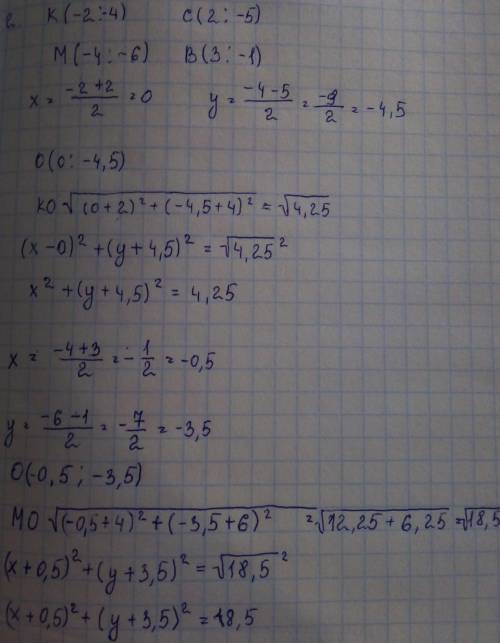 2. K(-2;-4)    C(2;-5)
M(-4;-6)    B(3;-1)
x = \frac{-2+2}{2} = 0    y = \frac{-4-5}{2} = \frac{-9}{2} = -4,5
O(0;-4,5)
KO \sqrt{(0+2)^2+(-4,5+4)^2} = \sqrt{4,25}
(x-0)^2+(y+4,5)^2 = \sqrt{4,25}^2
x^2+(y+4,5)^2 = 4,25
x = \frac{-4+3}{2} = -\frac{1}{2} = -0,5
y = \frac{-6-1}{2} = -\frac{7}{2} = -3,5
O(-0,5;-3,5)
MO \sqrt{(-0,5+4)^2+(-3,5+6)^2} = \sqrt{12,25+6,25} = \sqrt{18,5}
(x+0,5)^2+(y+3,5)^2 = \sqrt{18,5}^2
(x+0,5)^2+(y+3,5)^2 = 18,5